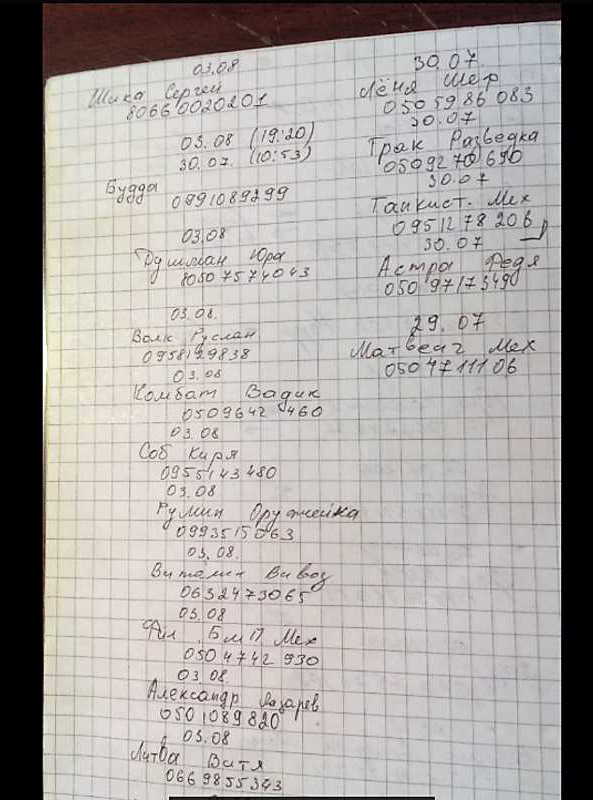 03.08
Шика Сергей
80660020201
03.08 (19:20)
30.07. (10:53)
Будда
0991089299
03.08
Душман Юра
80507574043
03.08.
Волк Руслан
0958129838
03.08
Комбат Вадик
0509642 460
03.08
Соб Киря
0955143480
03.08
Румын Оружейка
0993515063
03.08.
Виталик Вывоз
0632473065
03.08
Фил БМП Мех
0504742 930
03.08.
Александр Лазарев
0501089820
03.08
Литва Витя
0669855343
30.07.
Лёня Шер
0505986083
30.07
Трак Разведка
0509270690
30.07
Танкист. Мех
0951278206
30.07
Астра Федя
05097173490
29.07
Матвеич Мех
0504711106